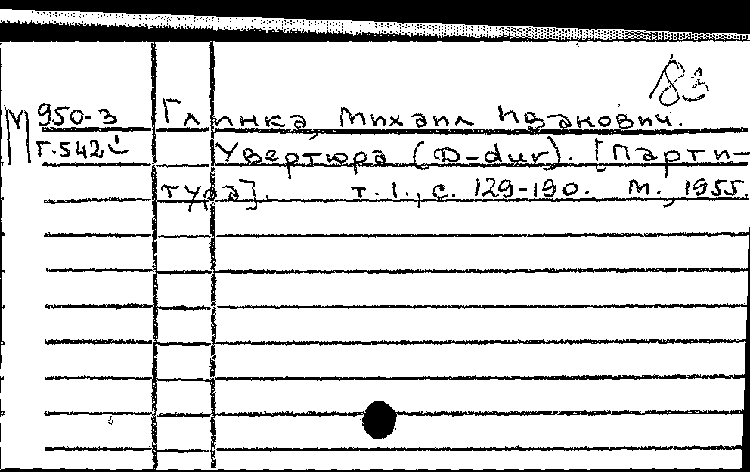 83
М 950-3 Глинка, Михаил Иванович.
Г.542 Увертюра (D-dur). [Парти-
тура]. т. 1., с. 129-190. М., 1955.